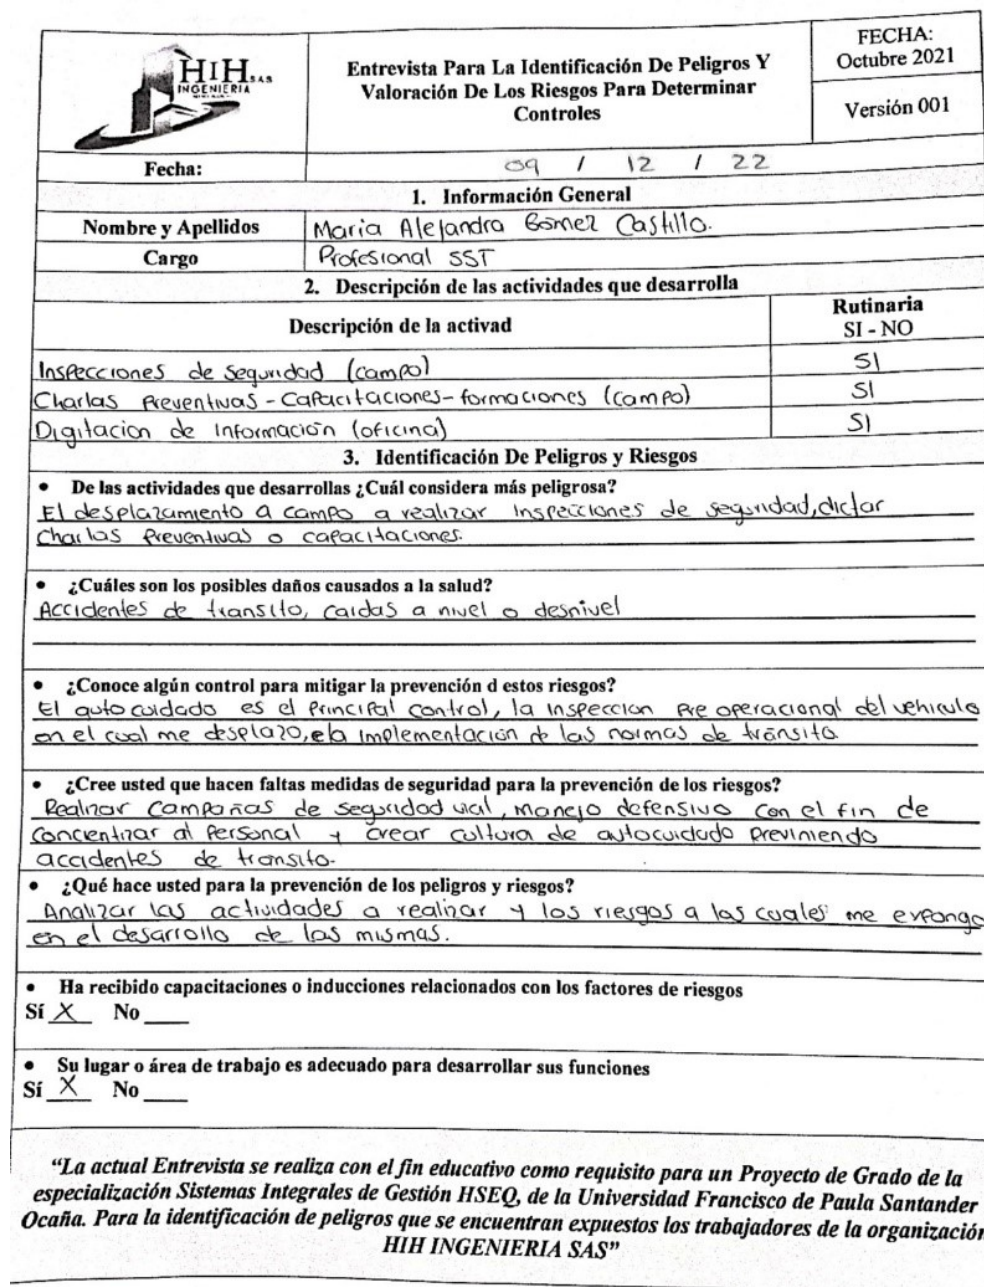 HIH SAS
INGENIERIA
Entrevista Para La Identificación De Peligros Y
Valoración De Los Riesgos Para Determinar
Controles
FECHA:
Octubre 2021
Versión 001
Fecha: 09 / 12 / 22
1. Información General
Nombre y Apellidos Maria Alejandra Gómez Castillo.
Cargo Profesional SST
2. Descripción de las actividades que desarrolla
Descripción de la activad Rutinaria
SI - NO
Inspecciones de seguridad (campo) SI
Charlas Preventivas - Capacitaciones - formaciones (campo) SI
Digitacion de Información (oficina) SI
3. Identificación De Peligros y Riesgos
• De las actividades que desarrollas ¿Cuál considera más peligrosa?
El desplazamiento a campo a realizar Inspecciones de seguridad, dictar
Charlas Preventivas o capacitaciones.
• ¿Cuáles son los posibles daños causados a la salud?
Accidentes de transito, caidas a nivel o desnivel
• ¿Conoce algún control para mitigar la prevención d estos riesgos?
El auto cuidado es el Principal control, la inspeccion pre operacional del vehiculo
en el cual me desplazo, la implementación de las normas de tránsito.
• ¿Cree usted que hacen faltas medidas de seguridad para la prevención de los riesgos?
Realizar Campañas de seguridad vial, manejo defensivo con el fin de
concientizar al Personal y crear cultura de autocuidado previniendo
accidentes de transito.
• ¿Qué hace usted para la prevención de los peligros y riesgos?
Analizar las actividades a realizar y los riesgos a los cuales me expongo
en el desarrollo de las mismas.
• Ha recibido capacitaciones o inducciones relacionados con los factores de riesgos
Sí X No ____
• Su lugar o área de trabajo es adecuado para desarrollar sus funciones
Sí X No ____
“La actual Entrevista se realiza con el fin educativo como requisito para un Proyecto de Grado de la
especialización Sistemas Integrales de Gestión HSEQ, de la Universidad Francisco de Paula Santander
Ocaña. Para la identificación de peligros que se encuentran expuestos los trabajadores de la organización
HIH INGENIERIA SAS”